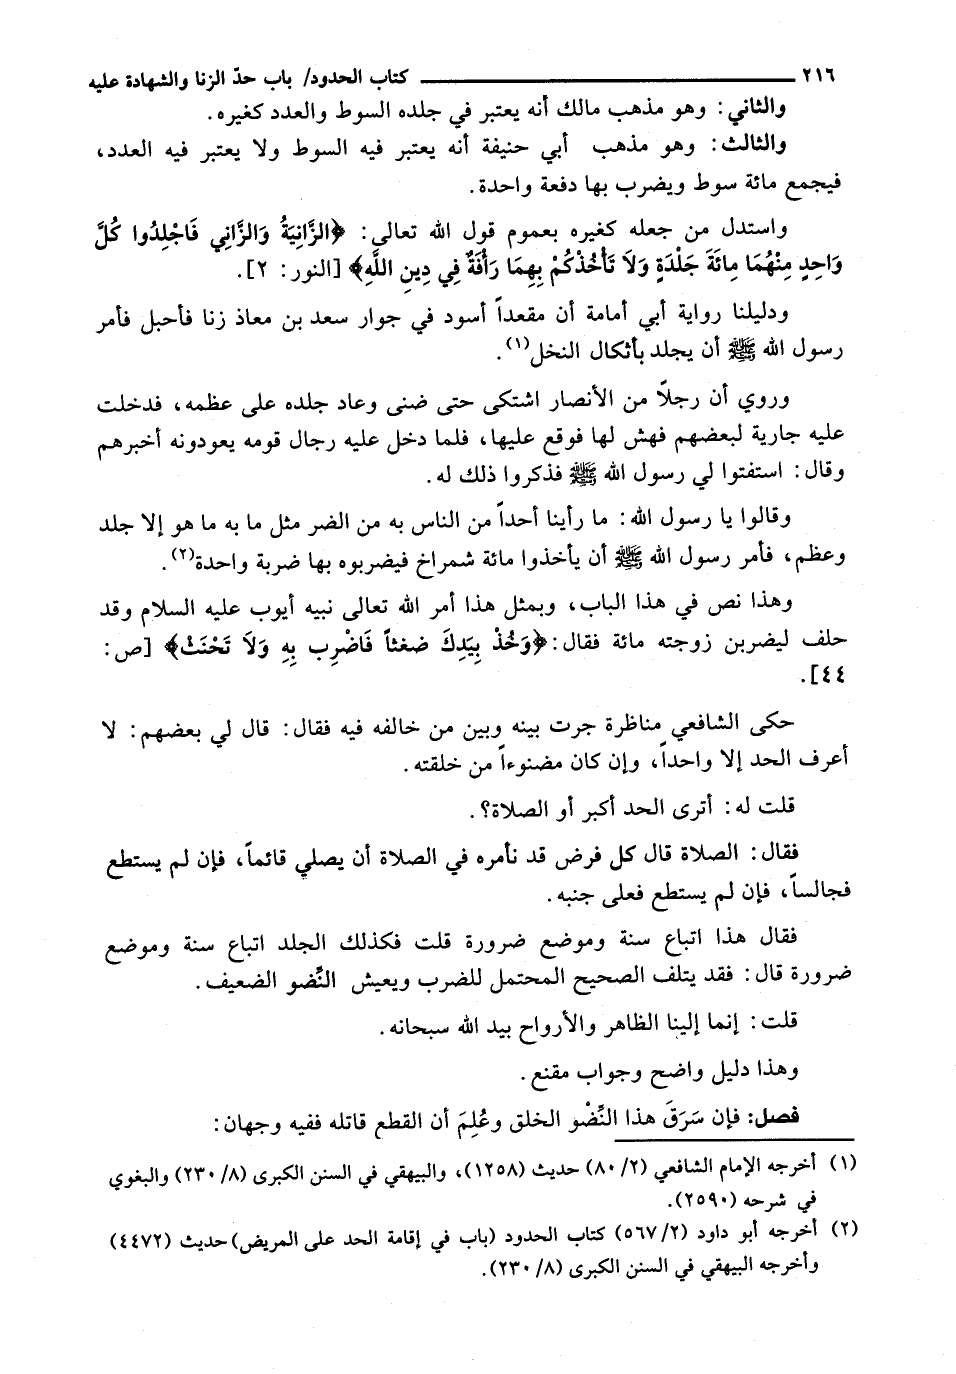 ٢١٦ كتاب الحدود/ باب حدّ الزنا والشهادة عليه
والثاني: وهو مذهب مالك أنه يعتبر في جلده السوط والعدد كغيره.
والثالث: وهو مذهب أبي حنيفة أنه يعتبر فيه السوط ولا يعتبر فيه العدد،
فيجمع مائة سوط ويضرب بها دفعة واحدة.
واستدل من جعله كغيره بعموم قول الله تعالى: ﴿الزَّانِيَةُ وَالزَّانِي فَاجْلِدُوا كُلَّ
وَاحِدٍ مِنْهُمَا مِائَةَ جَلْدَةٍ وَلَا تَأْخُذْكُمْ بِهِمَا رَأْفَةٌ فِي دِينِ اللَّهِ﴾ [النور: ٢].
ودليلنا رواية أبي أمامة أن مقعداً أسود في جوار سعد بن معاذ زنا فأحبل فأمر
رسول الله ﷺ أن يجلد بأثكال النخل(١).
وروي أن رجلاً من الأنصار اشتكى حتى ضنى وعاد جلده على عظمه، فدخلت
عليه جارية لبعضهم فهش لها فوقع عليها، فلما دخل عليه رجال قومه يعودونه أخبرهم
وقال: استفتوا لي رسول الله ﷺ فذكروا ذلك له.
وقالوا يا رسول الله: ما رأينا أحداً من الناس به من الضر مثل ما به ما هو إلا جلد
وعظم، فأمر رسول الله ﷺ أن يأخذوا مائة شمراخ فيضربوه بها ضربة واحدة(٢).
وهذا نص في هذا الباب، وبمثل هذا أمر الله تعالى نبيه أيوب عليه السلام وقد
حلف ليضربن زوجته مائة فقال: ﴿وَخُذْ بِيَدِكَ ضغثاً فَاضْرِب بِهِ وَلَا تَحْنَثْ﴾ [ص:
٤٤].
حكى الشافعي مناظرة جرت بينه وبين من خالفه فيه فقال: قال لي بعضهم: لا
أعرف الحد إلا واحداً، وإن كان مضنوءاً من خلقته.
قلت له: أترى الحد أكبر أو الصلاة؟.
فقال: الصلاة قال كل فرض قد نأمره في الصلاة أن يصلي قائماً، فإن لم يستطع
فجالساً، فإن لم يستطع فعلى جنبه.
فقال هذا اتباع سنة وموضع ضرورة قلت فكذلك الجلد اتباع سنة وموضع
ضرورة قال: فقد يتلف الصحيح المحتمل للضرب ويعيش النِّضو الضعيف.
قلت: إنما إلينا الظاهر والأرواح بيد الله سبحانه.
وهذا دليل واضح وجواب مقنع.
فصل: فإن سَرَقَ هذا النِّضْو الخلق وعُلِمَ أن القطع قاتله ففيه وجهان:
(١) أخرجه الإمام الشافعي (٨٠/٢) حديث (١٢٥٨)، والبيهقي في السنن الكبرى (٢٣٠/٨) والبغوي
في شرحه (٢٥٩٠).
(٢) أخرجه أبو داود (٥٦٧/٢) كتاب الحدود (باب في إقامة الحد على المريض) حديث (٤٤٧٢)
وأخرجه البيهقي في السنن الكبرى (٢٣٠/٨).